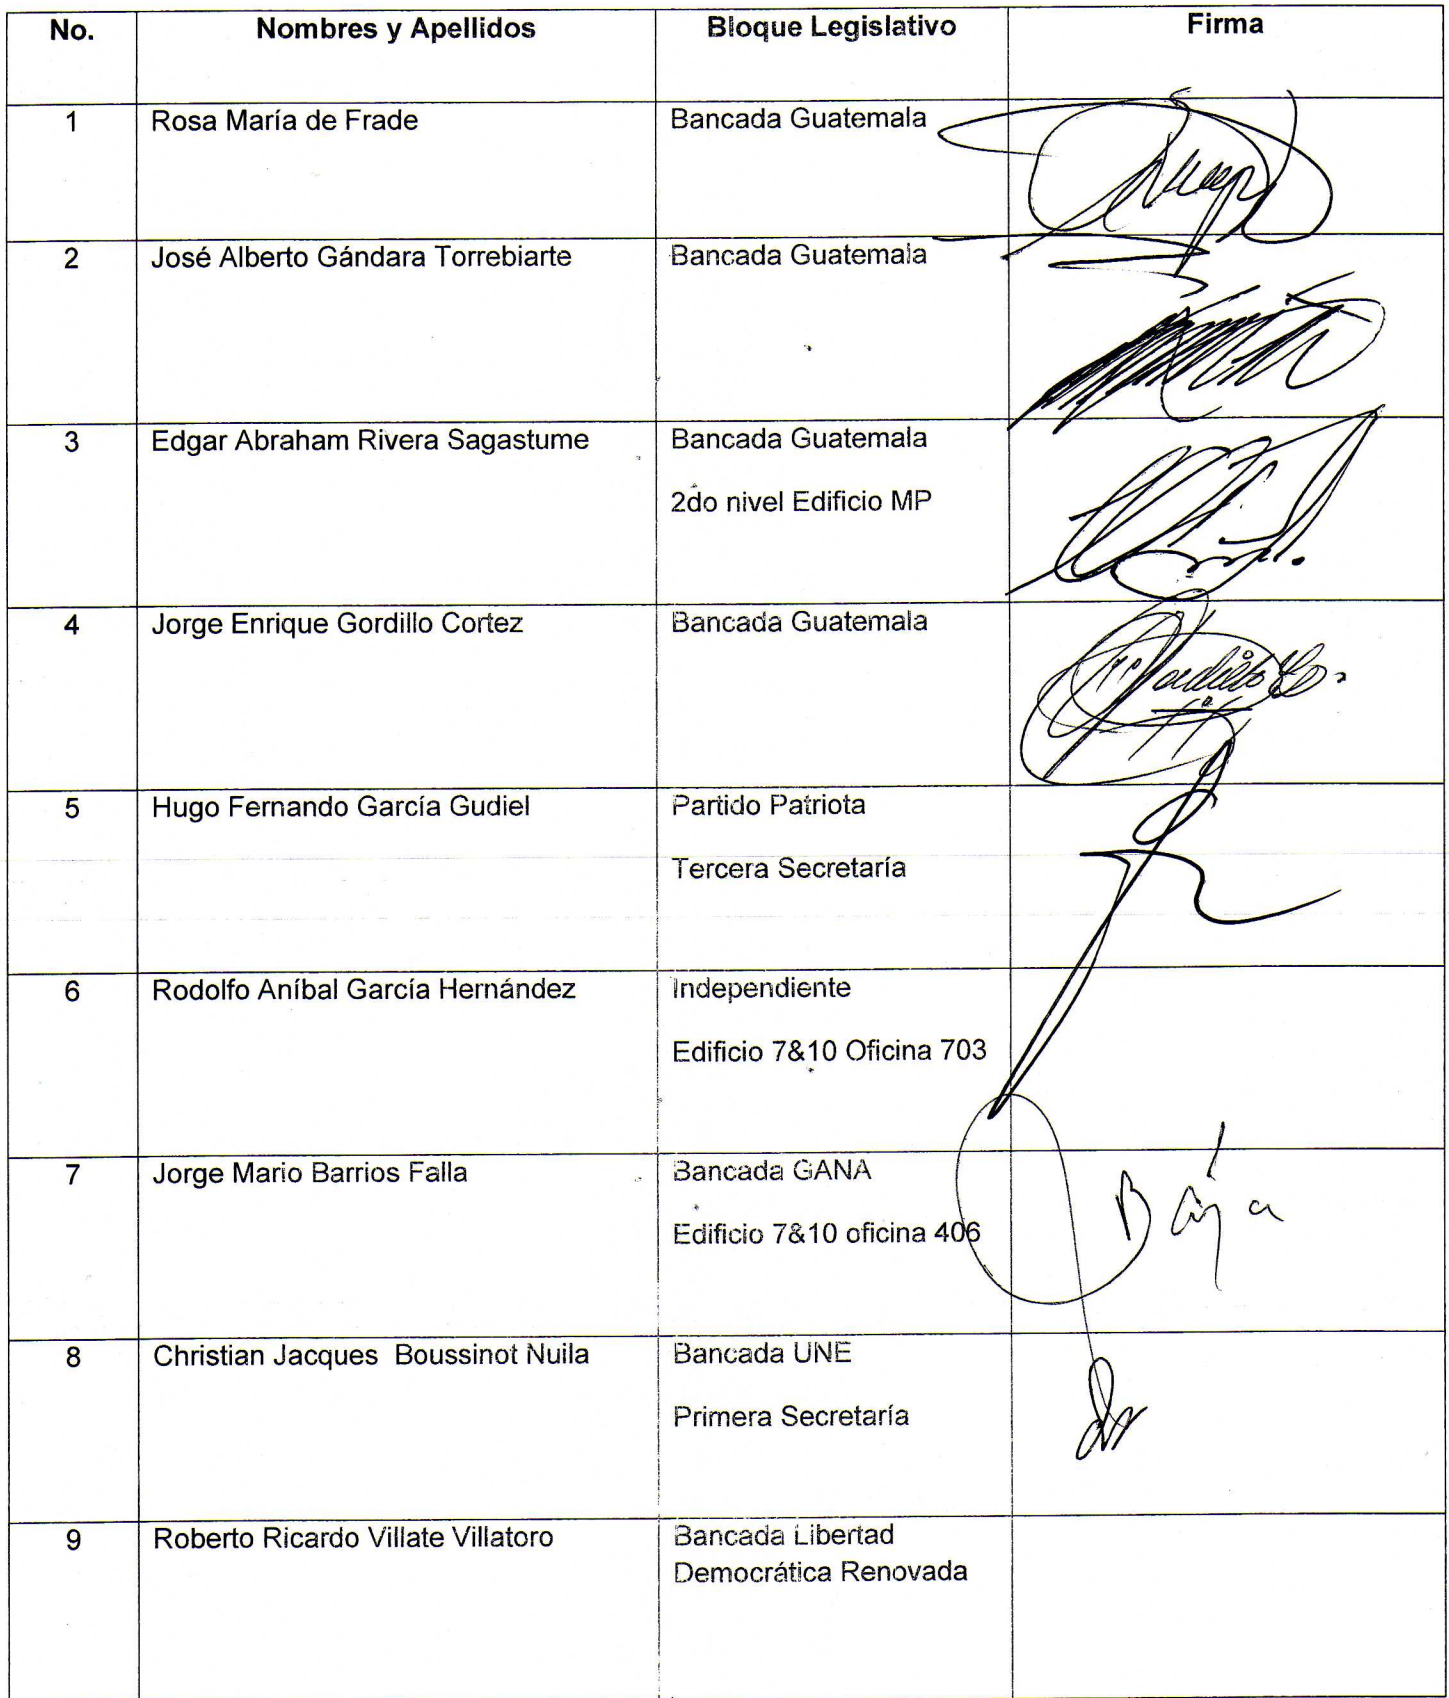 No. Nombres y Apellidos Bloque Legislativo Firma
1 Rosa María de Frade Bancada Guatemala
2 José Alberto Gándara Torrebiarte Bancada Guatemala
3 Edgar Abraham Rivera Sagastume Bancada Guatemala
2do nivel Edificio MP
4 Jorge Enrique Gordillo Cortez Bancada Guatemala
5 Hugo Fernando García Gudiel Partido Patriota
Tercera Secretaría
6 Rodolfo Aníbal García Hernández Independiente
Edificio 7&10 Oficina 703
7 Jorge Mario Barrios Falla Bancada GANA
Baja
Edificio 7&10 oficina 406
8 Christian Jacques Boussinot Nuila Bancada UNE
Primera Secretaría
9 Roberto Ricardo Villate Villatoro Bancada Libertad
Democrática Renovada